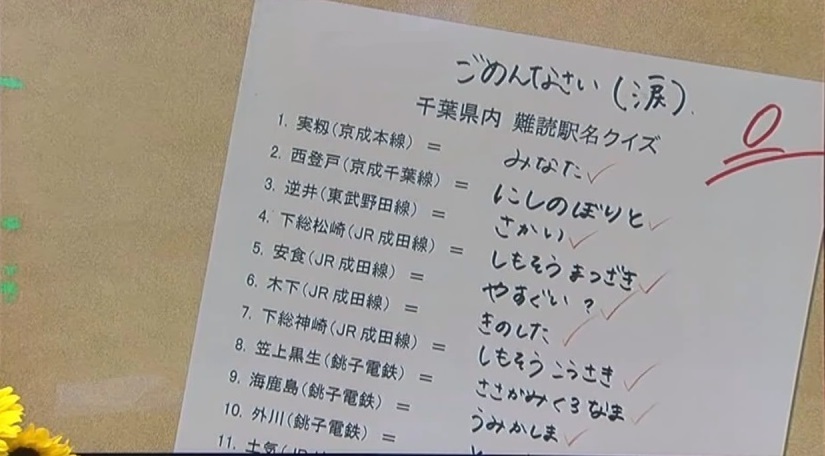 ごめんなさい(涙)
千葉県内 難読駅名クイズ
0
1. 実籾(京成本線) = みなた
2. 西登戸(京成千葉線) = にしのぼりと
3. 逆井(東武野田線) = さかい
4. 下総松崎(JR成田線) = しもそうまつざき
5. 安食(JR成田線) = やすぐい?
6. 木下(JR成田線) = きのした
7. 下総神崎(JR成田線) = しもそうこうさき
8. 笠上黒生(銚子電鉄) = ささがみくろなま
9. 海鹿島(銚子電鉄) = うみかしま
10. 外川(銚子電鉄) =
11. 土気(JR